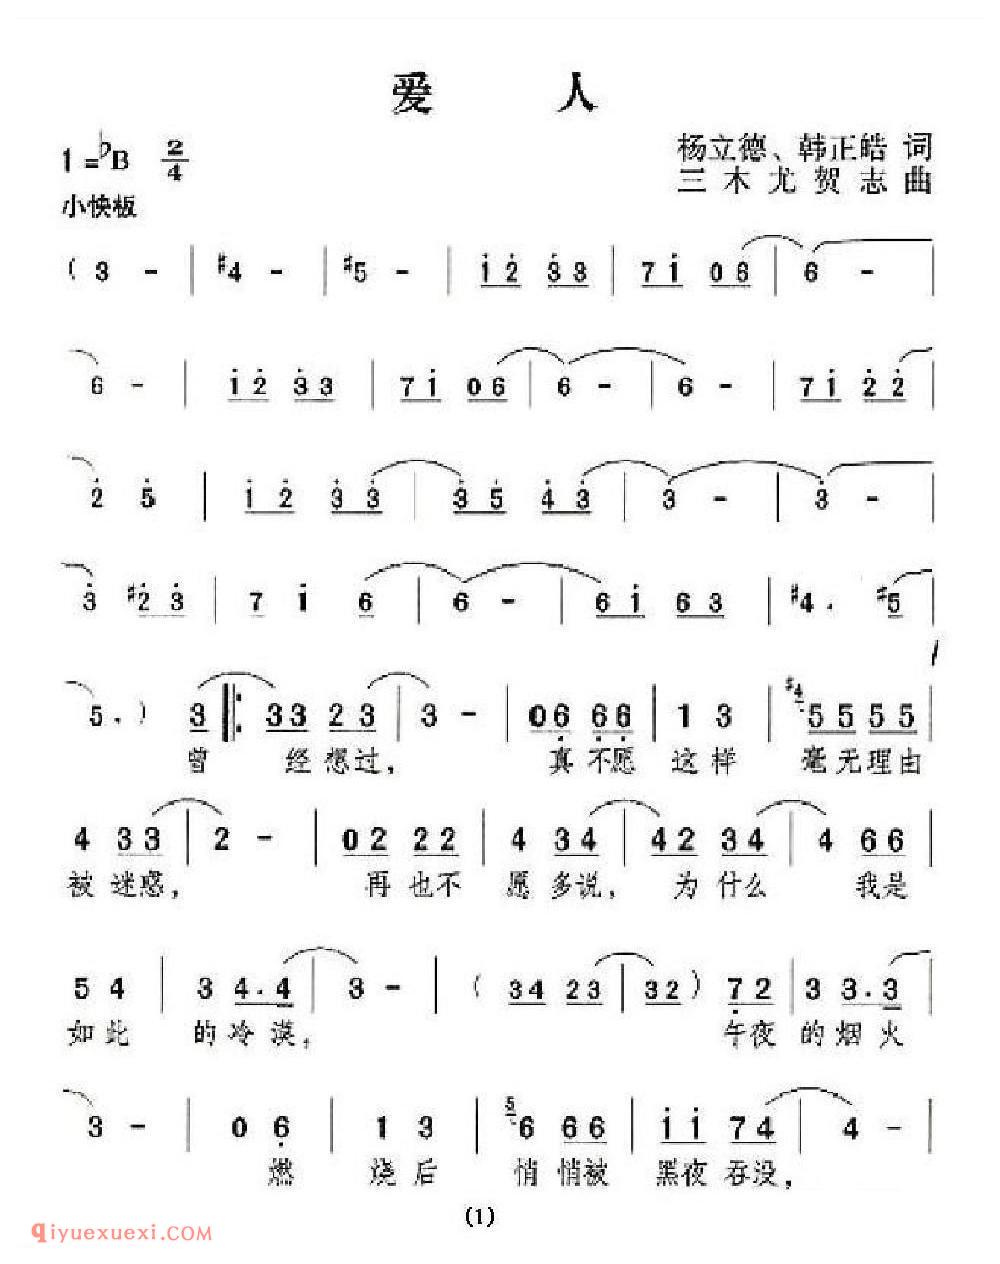 爱 人
1=♭B 2/4
杨立德、韩正皓 词
小快板
三木尤贺志 曲
( 3 - | #4 - | #5 - | 1̇ 2̇ 3̇ 3 | 7 1̇ 0 6 | 6 - |
6 - | 1̇ 2̇ 3̇ 3 | 7 1̇ 0 6 | 6 - | 6 - | 7 1̇ 2̇ 2̇ |
2̇ 5̇ | 1̇ 2̇ 3̇ 3̇ | 3̇ 5̇ 4̇ 3̇ | 3 - | 3̇ - |
3̇ #2̇ 3̇ | 7 1̇ 6 | 6 - | 6 1̇ 6 3 | #4. #5 |
5. ) 3 ‖: 3 3 2 3 | 3 - | 0 6̣ 6̣ 6̣ | 1 3 | #4 5 5 5 5 |
曾 经 想 过, 真 不 愿 这 样 毫 无 理 由
4 3 3 | 2 - | 0 2 2 2 | 4 3 4 | 4 2 3 4 | 4 6 6 |
被 迷 惑, 再 也 不 愿 多 说, 为 什 么 我 是
5 4 | 3 4. 4 | 3 - | ( 3 4 2 3 | 3 2 ) 7̣ 2 | 3 3. 3 |
如 此 的 冷 漠, 午 夜 的 烟 火
3 - | 0 6̣ | 1 3 | 5 6 6 6 | 1̇ 1̇ 7 4 | 4 - |
燃 烧 后 悄 悄 被 黑 夜 吞 没,
(1)
qiyuexuexi.com